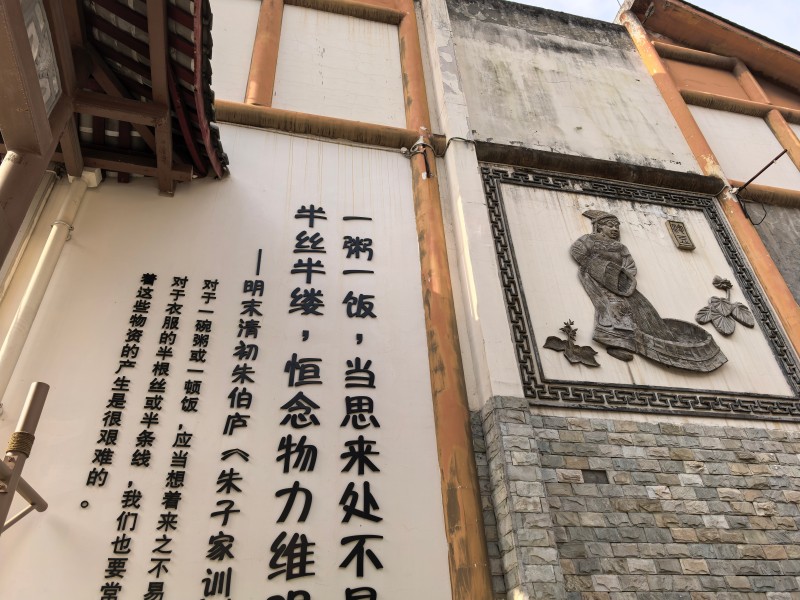 一粥一饭，当思来处不
半丝半缕，恒念物力维
——明末清初朱伯庐《朱子家训
对于一碗粥或一顿饭，应当想着来之不易
对于衣服的半根丝或半条线，我们也要常
着这些物资的产生是很艰难的。